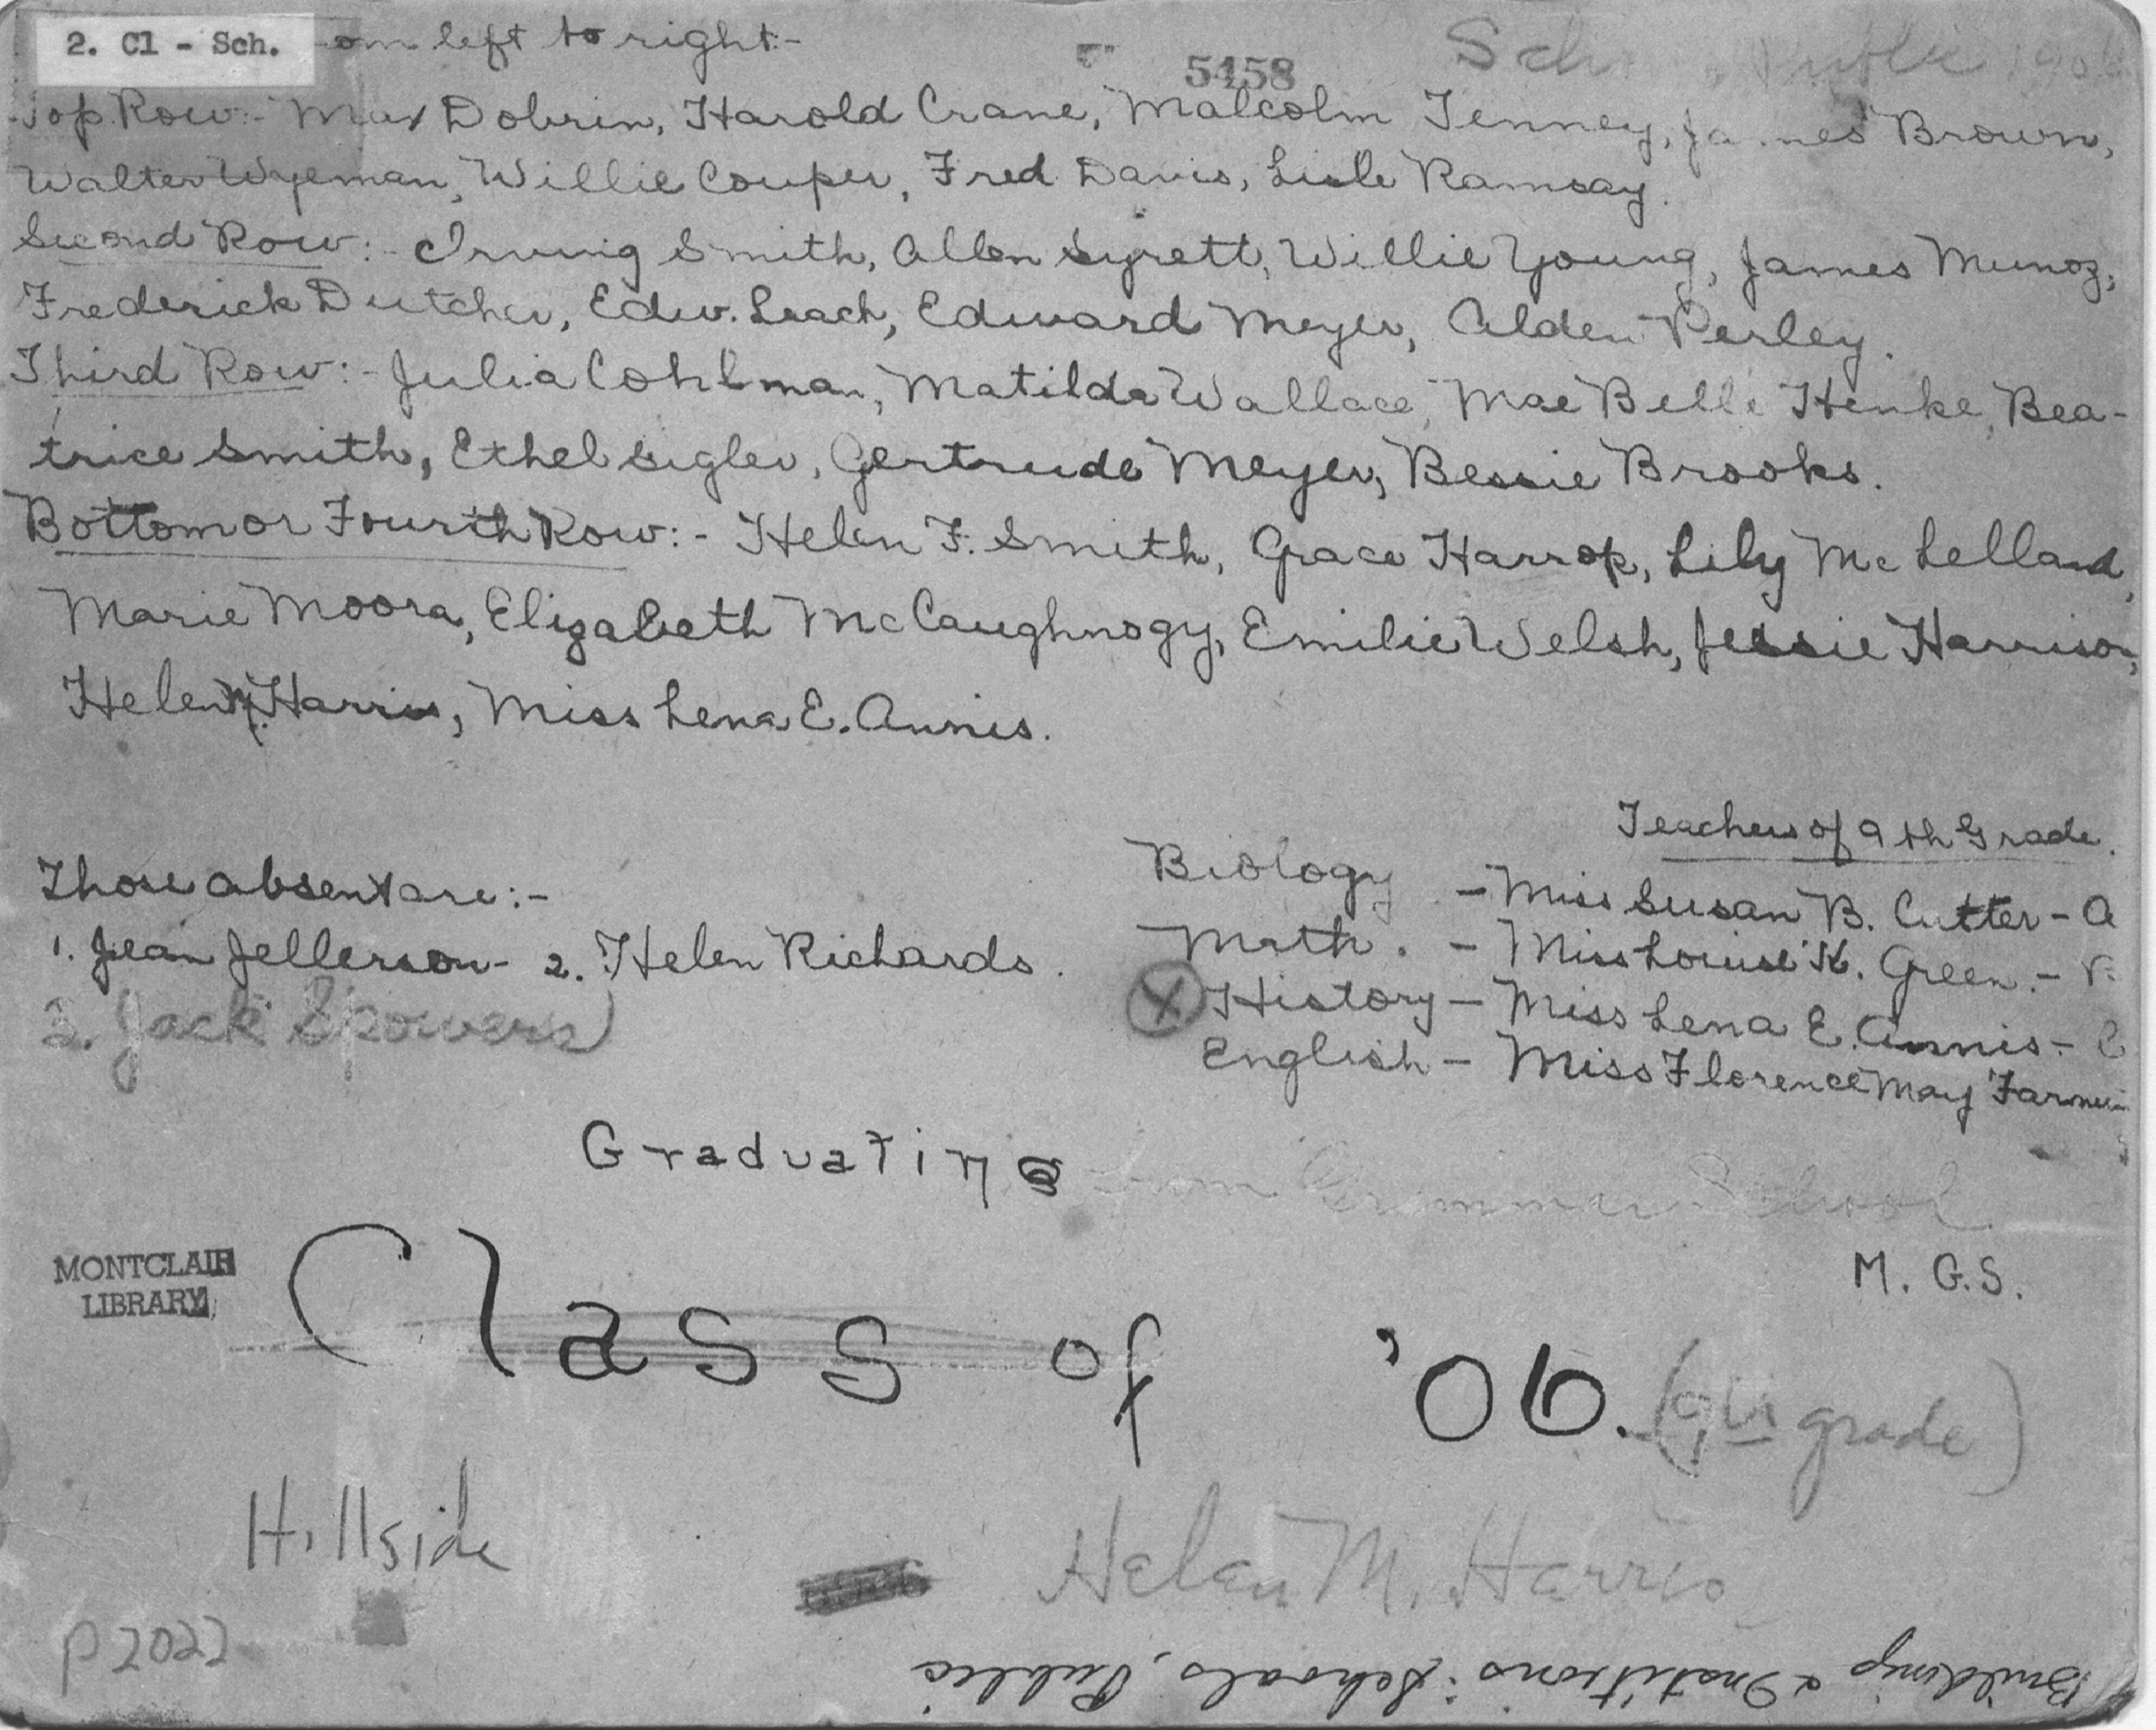 2. Cl - Sch.
left to right:-
5458
Sch Public 1906
Top Row:- Max Dobrin, Harold Crane, Malcolm Tenney, James Brown,
Walter Wyeman, Willie Couper, Fred Davis, Lisle Ramsay.
Second Row:- Irving Smith, Allen Syrett, Willie Young, James Munoz,
Frederick Dutcher, Edw. Leach, Edward Meyer, Alden Perley.
Third Row:- Julia Cohlman, Matilda Wallace, Mae Belle Henke, Bea-
trice Smith, Ethel Sigler, Gertrude Meyer, Bessie Brooks.
Bottom or Fourth Row:- Helen F. Smith, Grace Harrop, Lily McLelland,
Marie Moora, Elizabeth McCaughnogy, Emilie Welsh, Jessie Harrison,
Helen M. Harris, Miss Lena E. Annis.
Teachers of 9th Grade.
Those absent are:-
1. Jean Jellerson - 2. Helen Richards.
3. Jack Spowers
Biology - Miss Susan B. Cutter - A
Math. - Miss Louise K. Green. -
X History - Miss Lena E. Annis -
English - Miss Florence May Farmer
Graduating from Grammar School
M. G. S.
MONTCLAIR
LIBRARY
Class of '06. (9th grade)
Hillside
Helen M. Harris
P2022
Buildings & Institions: Schools, Public